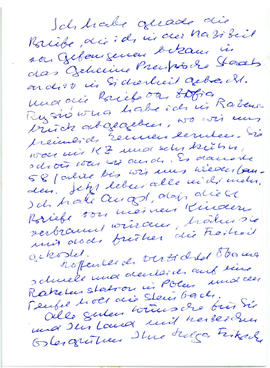 Ich habe gerade die
Briefe, die ich in der Nazizeit
von Gefangenen bekam in
das Geheime Preußische Staats
archiv in Sicherheit gebracht.
Und die Briefe von Zofia
habe ich in Ravens
brück abgegeben, wo wir uns
heimlich kennen lernten. Sie
war im KZ und sehr
schön war sie auch. Es dauerte
58 Jahre bis wir uns wiederfan-
den. Jetzt leben alle nicht mehr.
Ich hatte Angst, daß diese
Briefe von meinen Kindern
verbrannt würden, hätten sie
mir doch früher die Freiheit
gekostet.
Hoffentlich verzichtet Obama
schnell und deutlich auf eine
Raketenstation in Polen und der
Teufel holt die Steinbach.
Alles gute wünsche ich für Sie
und Ihr Land mit herzlichen
Ostergrüßen Ihre Helga